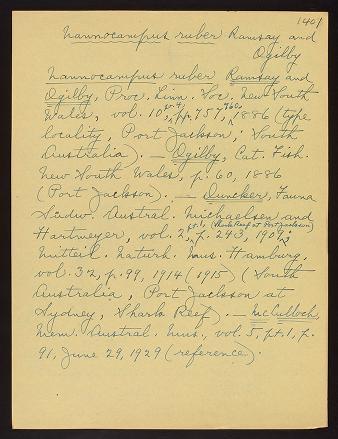 1401
Nannocampus ruber Ramsay and
Ogilby
Nannocampus ruber Ramsay and
Ogilby, Proc. Linn. Soc. New South
Wales, vol. 10, pt. 4, pp. 757, 760, 1886 (type
locality, Port Jackson, South
Australia). — Ogilby, Cat. Fish.
New South Wales, p. 60, 1886
(Port Jackson). — Duncker, Fauna
Südw. Austral. Michaelsen and
Hartmeyer, vol. 2, pt. 1, p. 243, 1909 (Sharks Reef at Port Jackson);
Mitteil. Naturh. Mus. Hamburg,
vol. 32, p. 99, 1914 (1915) (South
Australia, Port Jackson at
Sydney, Shark Reef). — McCulloch,
Mem. Austral. Mus., vol. 5, pt. 1, p.
91, June 29, 1929 (reference).